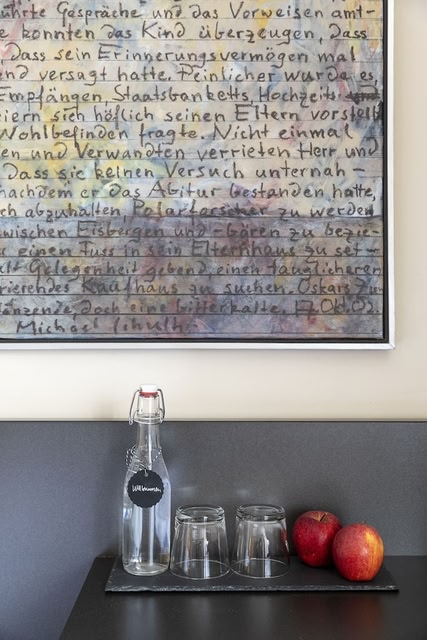 ührte Gespräche und das Vorweisen amt-
e konnten das Kind überzeugen, Dass
dass sein Erinnerungsvermögen mal
nd versagt hatte. Peinlicher wurde es,
Empfängen, Staatsbanketts, Hochzeits
eiern sich höflich seinen Eltern vorstell
Wohlbefinden fragte. Nicht einmal
en und Verwandten verrieten Herr und
Dass sie keinen Versuch unternah-
nachdem er das Abitur bestanden hatte,
ch abzuhalten Polarforscher zu werden
wischen Eisbergen und -bären zu bezie-
einen Fuss in sein Elternhaus zu set-
Gelegenheit gebend einen tauglicheren
rierendes Kaufhaus zu suchen. Oskars Zu-
länzende, doch eine bitterkalte. 17.Okt.02.
Michael Schulth
Willkommen